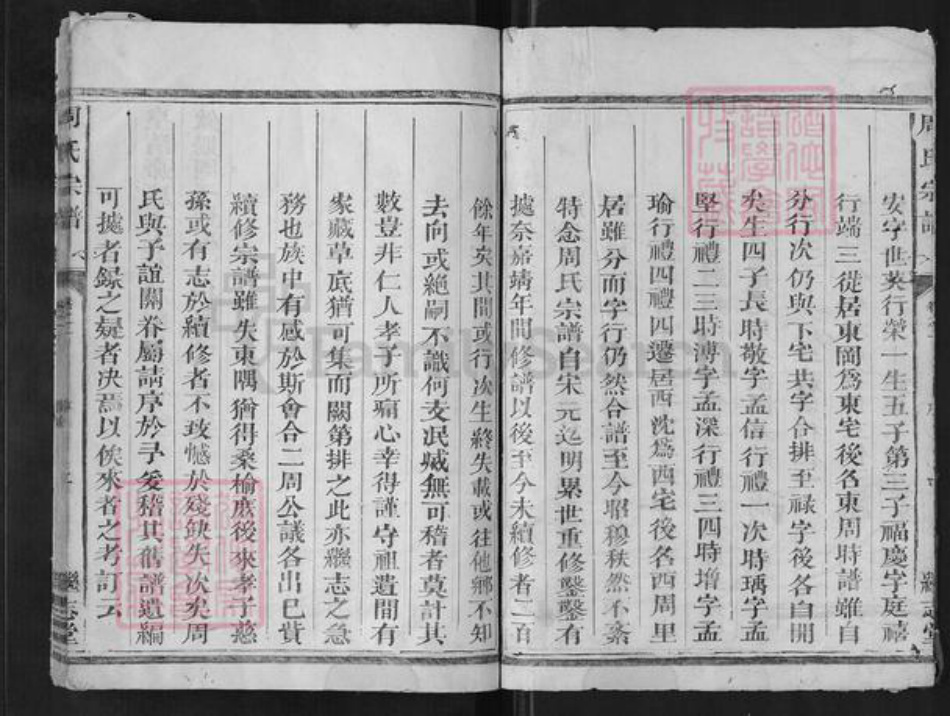 周氏宗譜
安字世英行榮一生五子第三子福慶字庭禧
行端三從居東岡爲東宅後名東周時譜雖自
分行次仍與下宅共字合排至禄字後各自開
矣生四子長時敬字孟信行禮一次時瑀字孟
堅行禮二三時溥字孟深行禮三四時增字孟
瑜行禮四禮四遷居西沈爲西宅後名西周里
居雖分而字行仍然合譜至今昭穆秩然不紊
特念周氏宗譜自宋元迄明累世重修鑿鑿有
據奈嘉靖年間修譜以後至今未續修者二百
餘年矣其間或行次生終失載或往他鄉不知
去向或絶嗣不識何支泯滅無可稽者莫計其
數豈非仁人孝子所痛心幸得謹守祖遺間有
家藏草底猶可集而闕第排之此亦繼志之急
務也族中有感於斯會合二周公議各出己貲
續修宗譜雖失東隅猶得桑榆庶後來孝子慈
孫或有志於續修者不致憾於殘缺失次矣周
氏與予誼關眷屬請序於予爰稽其舊譜遺編
可據者録之疑者决焉以俟來者之考訂云
周氏宗譜
繼志堂